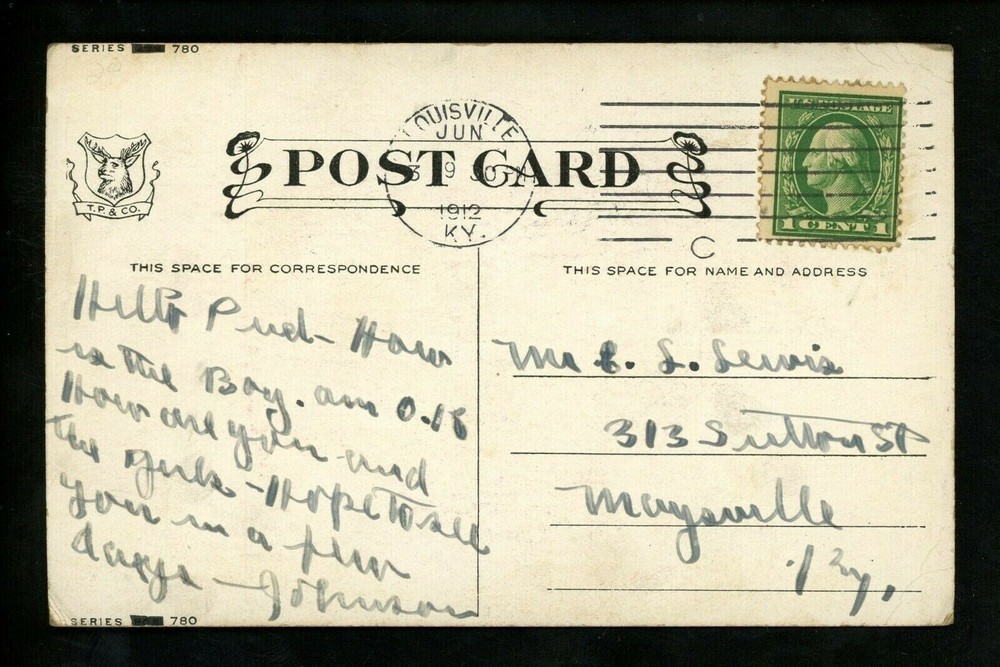 SERIES 780
LOUISVILLE
JUN
1912
KY.
POST CARD
T.P. & CO.
U.S. POSTAGE
1 CENT 1
C
THIS SPACE FOR CORRESPONDENCE
Hello Pud - How
is the Boy. am O.K
How are you and
the girls - Hope to see
you in a few
days - Johnson
THIS SPACE FOR NAME AND ADDRESS
Mr E. L. Lewis
313 Sutton St
Maysville
Ky,
SERIES 780